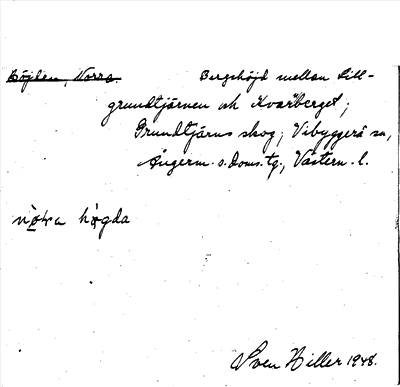 Höjden, Norra. Bergshöjd mellan Lill-
grundtjärnen och Kvarberget;
Grundtjärns skog; Vibyggerå sn,
Ångerm. s. Doms. tg., Västern. l.
nò̱ra hø̀gda
Sven Hiller 1948.